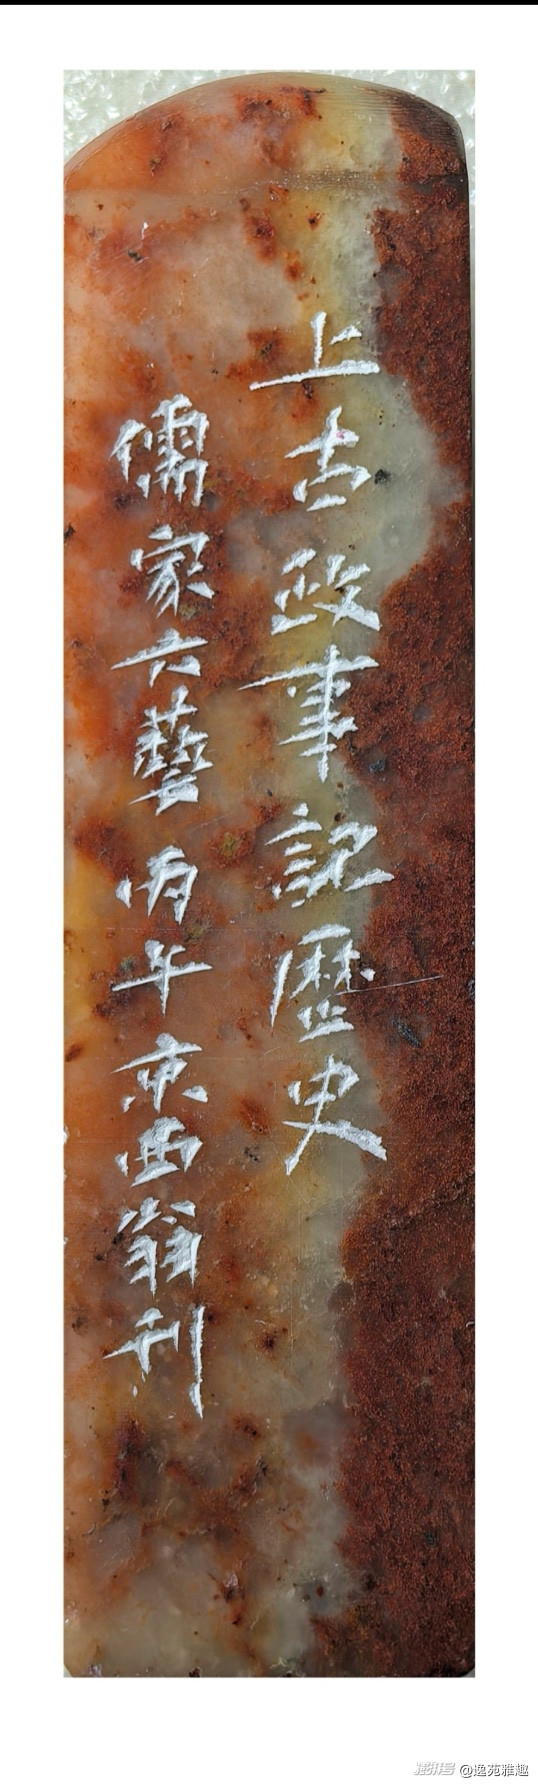 上古政事記歷史
儒家六藝丙午京西翁刊
澎湃号 @逸苑雅趣